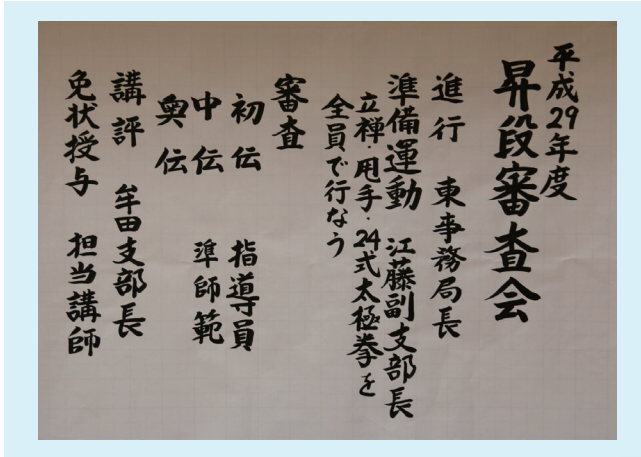 平成29年度
昇段審査会
進行 東事務局長
準備運動 江藤副支部長
立禅・甩手・24式太極拳を
全員で行なう
審査
初伝 指導員
中伝 準師範
奥伝
講評 牟田支部長
免状授与 担当講師